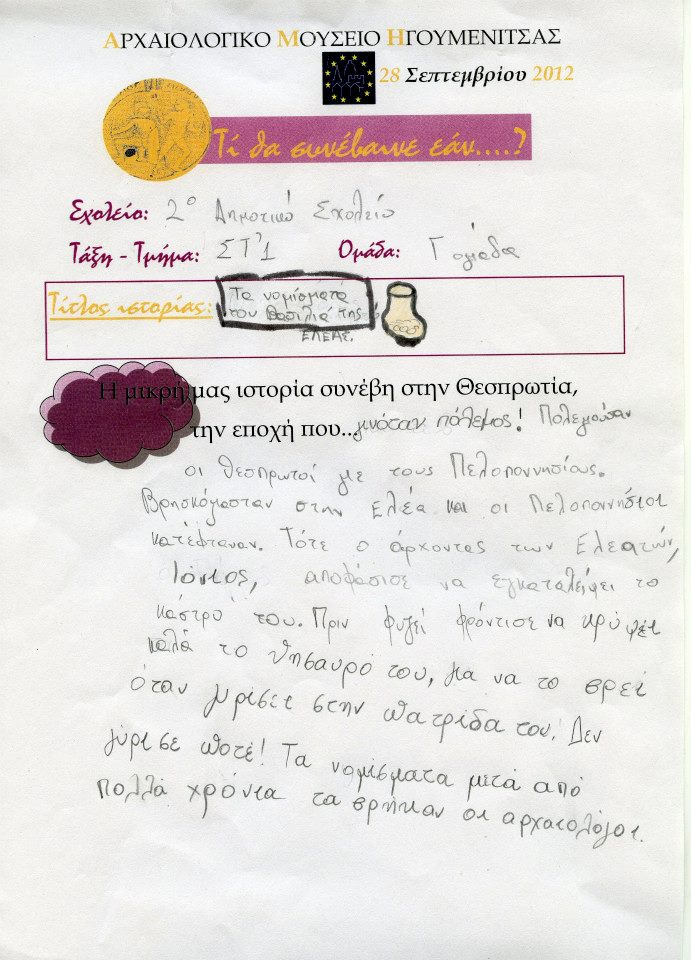 ΑΡΧΑΙΟΛΟΓΙΚΟ ΜΟΥΣΕΙΟ ΗΓΟΥΜΕΝΙΤΣΑΣ
28 Σεπτεμβρίου 2012
Τί θα συνέβαινε εάν....?
Σχολείο: 2ο Δημοτικό Σχολείο
Τάξη - Τμήμα: ΣΤ'1 Ομάδα: Γ ομάδα
Τίτλος ιστορίας: Τα νομίσματα
του βασιλιά της
ΕΛΕΑΣ.
Η μικρή μας ιστορία συνέβη στην Θεσπρωτία,
την εποχή που... γινόταν πόλεμος! Πολεμούσαν
οι Θεσπρωτοί με τους Πελοποννησίους.
Βρησκόμασταν στην Ελέα και οι Πελοποννήσιοι
κατέφταναν. Τότε ο άρχοντας των Ελεατών,
Ιόντος, αποφάσισε να εγκαταλείψει το
κάστρό του. Πριν φυγεί φρόντισε να κρύψει
καλά το θησαυρό του, για να το βρεί
όταν γυρίσει στην πατρίδα του. Δεν
γύρισε ποτέ! Τα νομίσματα μετά από
πολλά χρόνια τα βρήκαν οι αρχαιολόγοι.